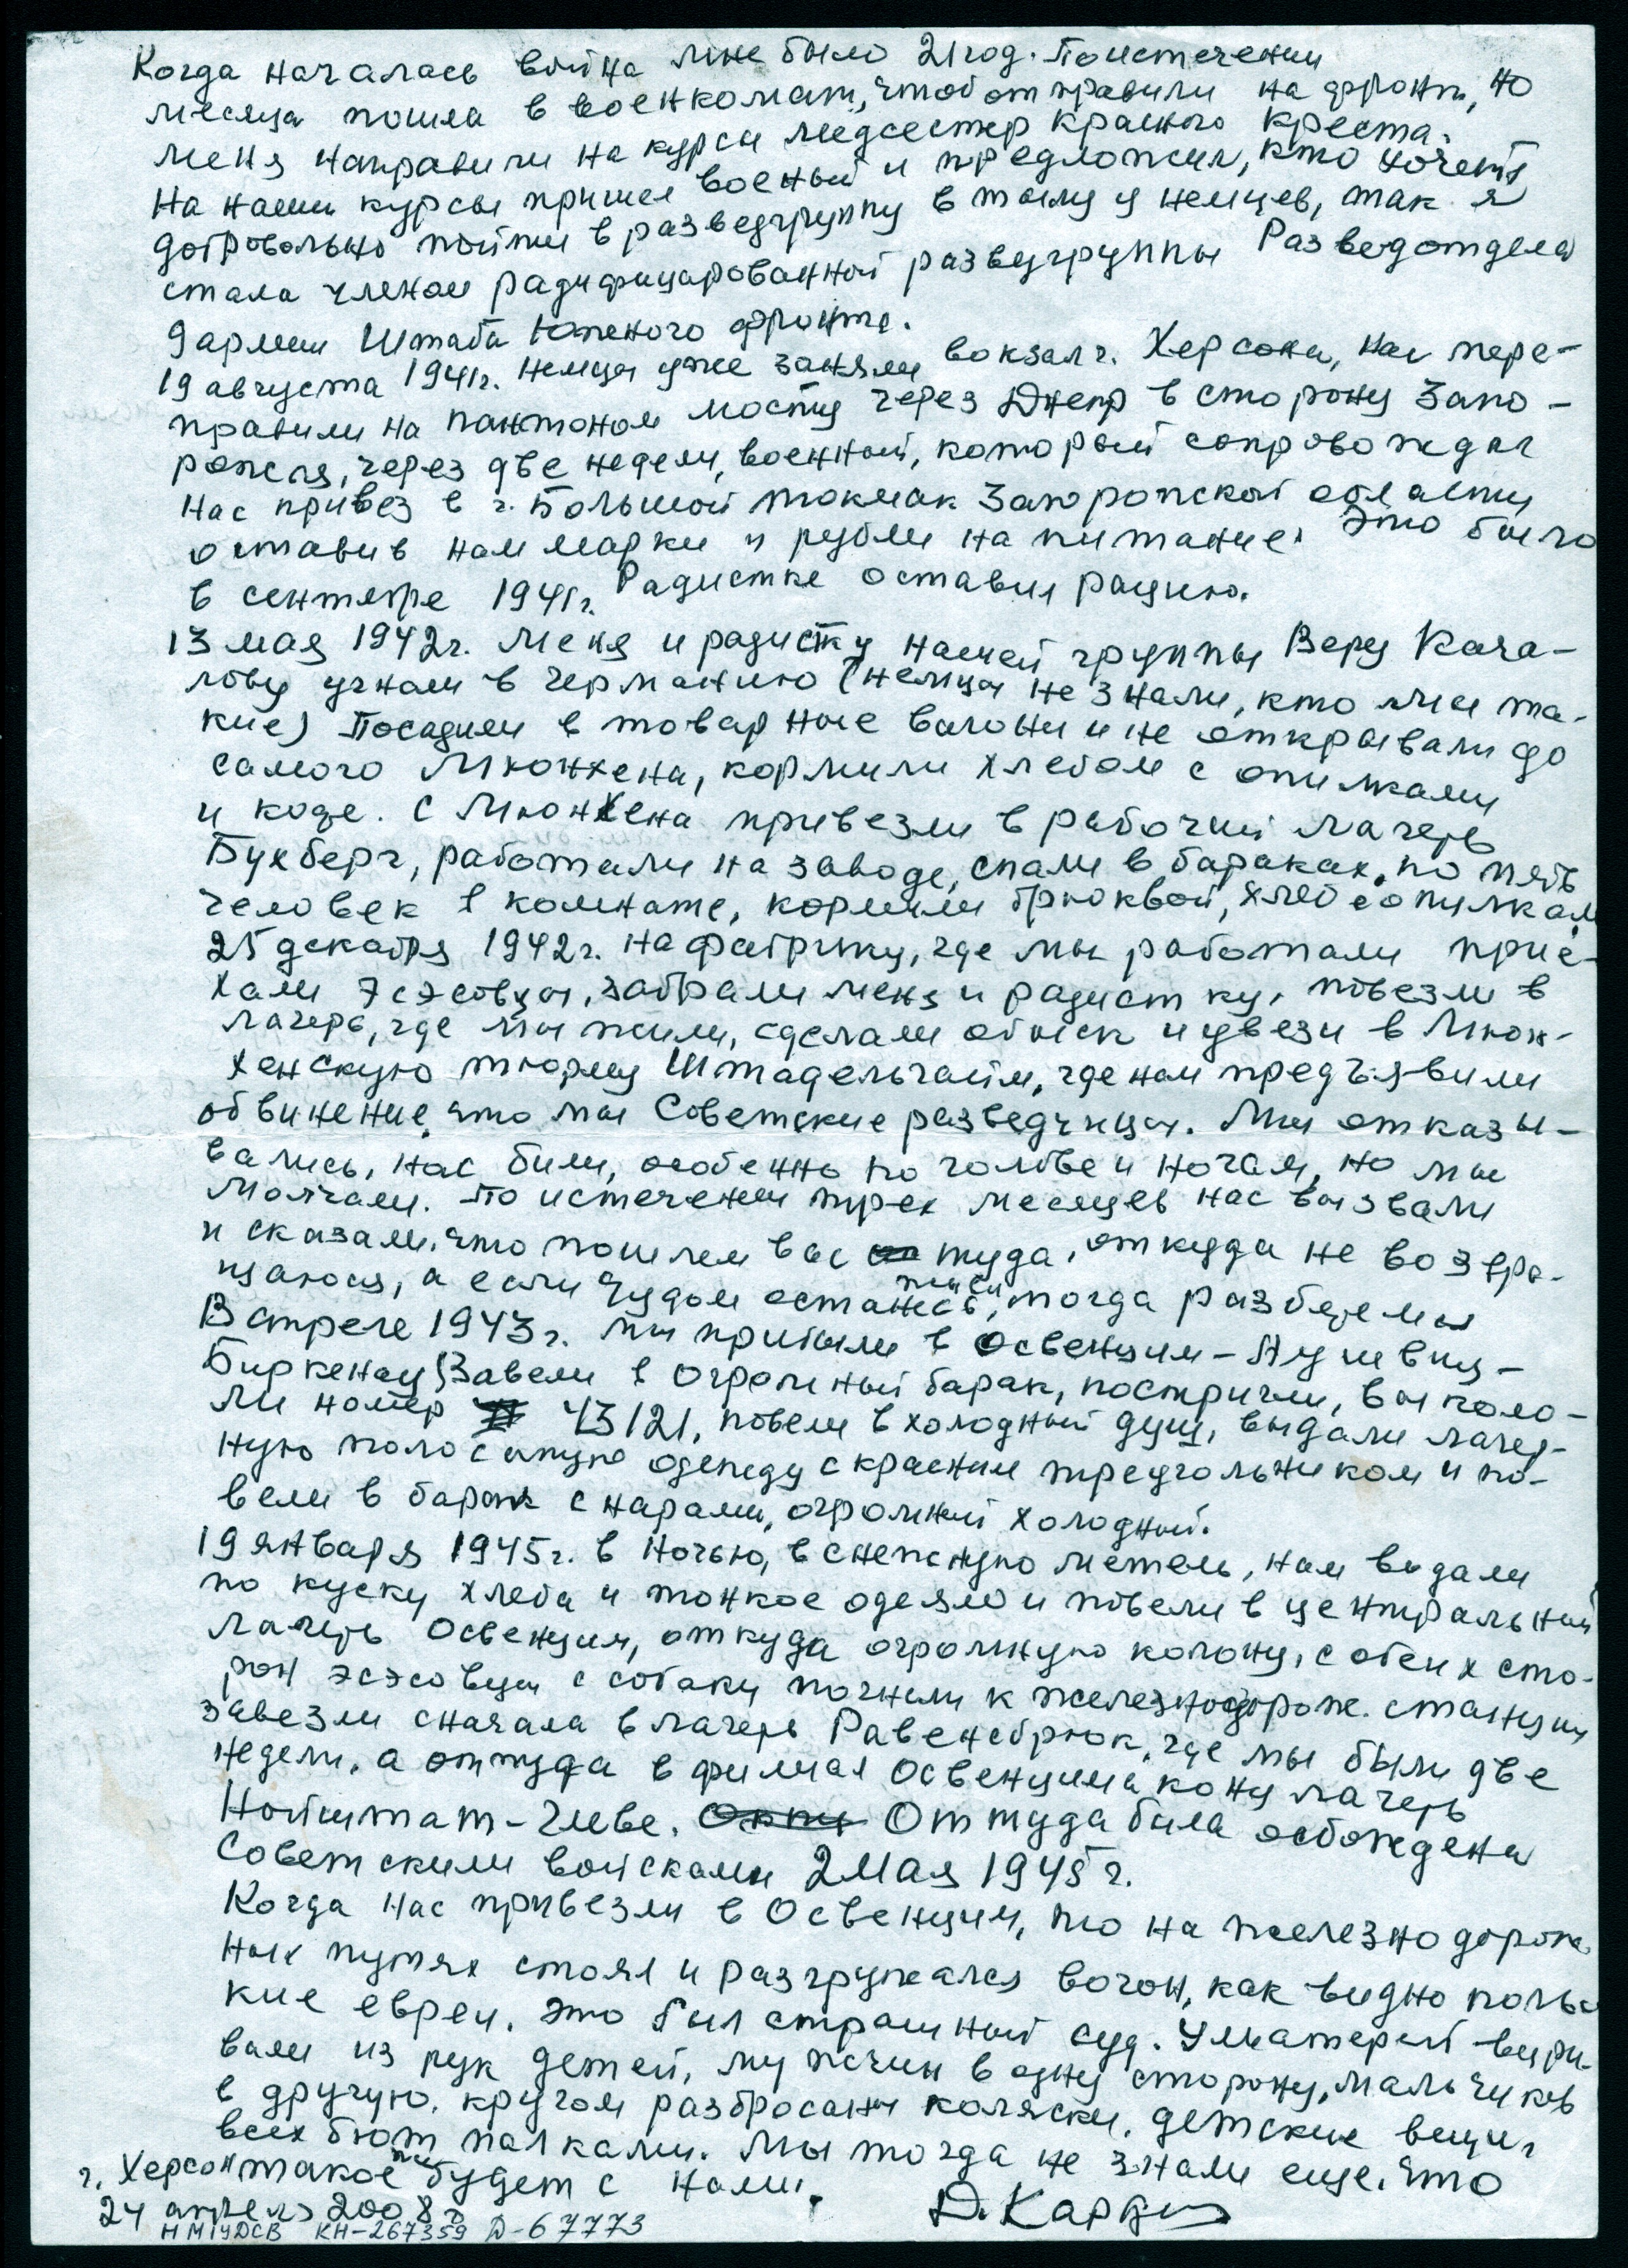 Когда началась война мне было 21 год. По истечении
месяца пошла в военкомат, чтоб отправили на фронт, но
меня направили на курсы медсестер красного креста.
На наши курсы пришел военый и предложил, кто хочет
добровольно пойти в разведгруппу в тылу у немцев, так я
стала членом радифицированной разведгруппы Разведотдела
9 армии Штаба Южного фронта.
19 августа 1941г. немцы уже заняли вокзал г. Херсона, нас пере-
правили на пантоном мосту через Днепр в сторону Запо-
рожья, через две недели, военный, который сопровождал
нас привез в г. Большой токмак Запорожской области
оставив нам марки и рубли на питание. Это было
в сентябре 1941г. Радистке оставил рацию.
13 мая 1942г. меня и радистку нашей группы Веру Кача-
лову угнали в Германию (немцы не знали, кто мы та-
кие) Посадили в товарные вагоны и не открывали до
самого Мюнхена, кормили хлебом с опилками
и кофе. С Мюнхена привезли в рабочий лагерь
Бухберг, работали на заводе, спали в бараках, по пять
человек в комнате, кормили брюквой, хлеб с опилками
25 декабря 1942г. на фабрику, где мы работали прие-
хали эсэсовцы, забрали меня и радистку, повезли в
лагерь, где мы жили, сделали обыск и увезли в Мюн-
хенскую тюрьму Штадельгайм, где нам предъявили
обвинение, что мы Советские разведчицы. Мы отказы-
вались, нас били, особенно по голове и ночам, но мы
молчали. По истечении трех месяцев нас вызвали
и сказали, что пошлем вас туда, откуда не возвра-
щаются, а если чудом останесь живы, тогда разберемся
В апреле 1943г. мы прибыли в Освенцим-Аушвиц-
Биркенау. Завели в огромный барак, постригли, выколо-
ли номер 43121, повели в холодный душ, выдали лагер-
ную полосатую одежду с красным треугольником и по-
вели в барак с нарами, огромный холодный.
19 января 1945г. в ночью, в снежную метель, нам выдали
по куску хлеба и тонкое одеяло и повели в центральный
лагерь Освенцим, откуда огромную колону, с обеих сто-
рон эсэсовцы с собаки погнали к железнодорож. станции
завезли сначала в лагерь Равенсбрюк, где мы были две
недели, а оттуда в филиал Освенцима кону лагерь
Нойштат-Глеве. Оттуда была осбождена
Советскими войсками 2 мая 1945г.
Когда нас привезли в Освенцим, то на железнодорож
ных путях стоял и разгружался вогон, как видно польс
кие евреи. Это был страшный суд. У матерей выры-
вали из рук детей, мужчин в одну сторону, мальчиков
в другую, кругом разбросаны коляски, детские вещи,
всех бют палками. Мы тогда не знали еще, что
такое же будет с нами.
г. Херсон
24 апреля 2008г
Д. Карбу
НМІУДСВ КН-267359 Д-67773